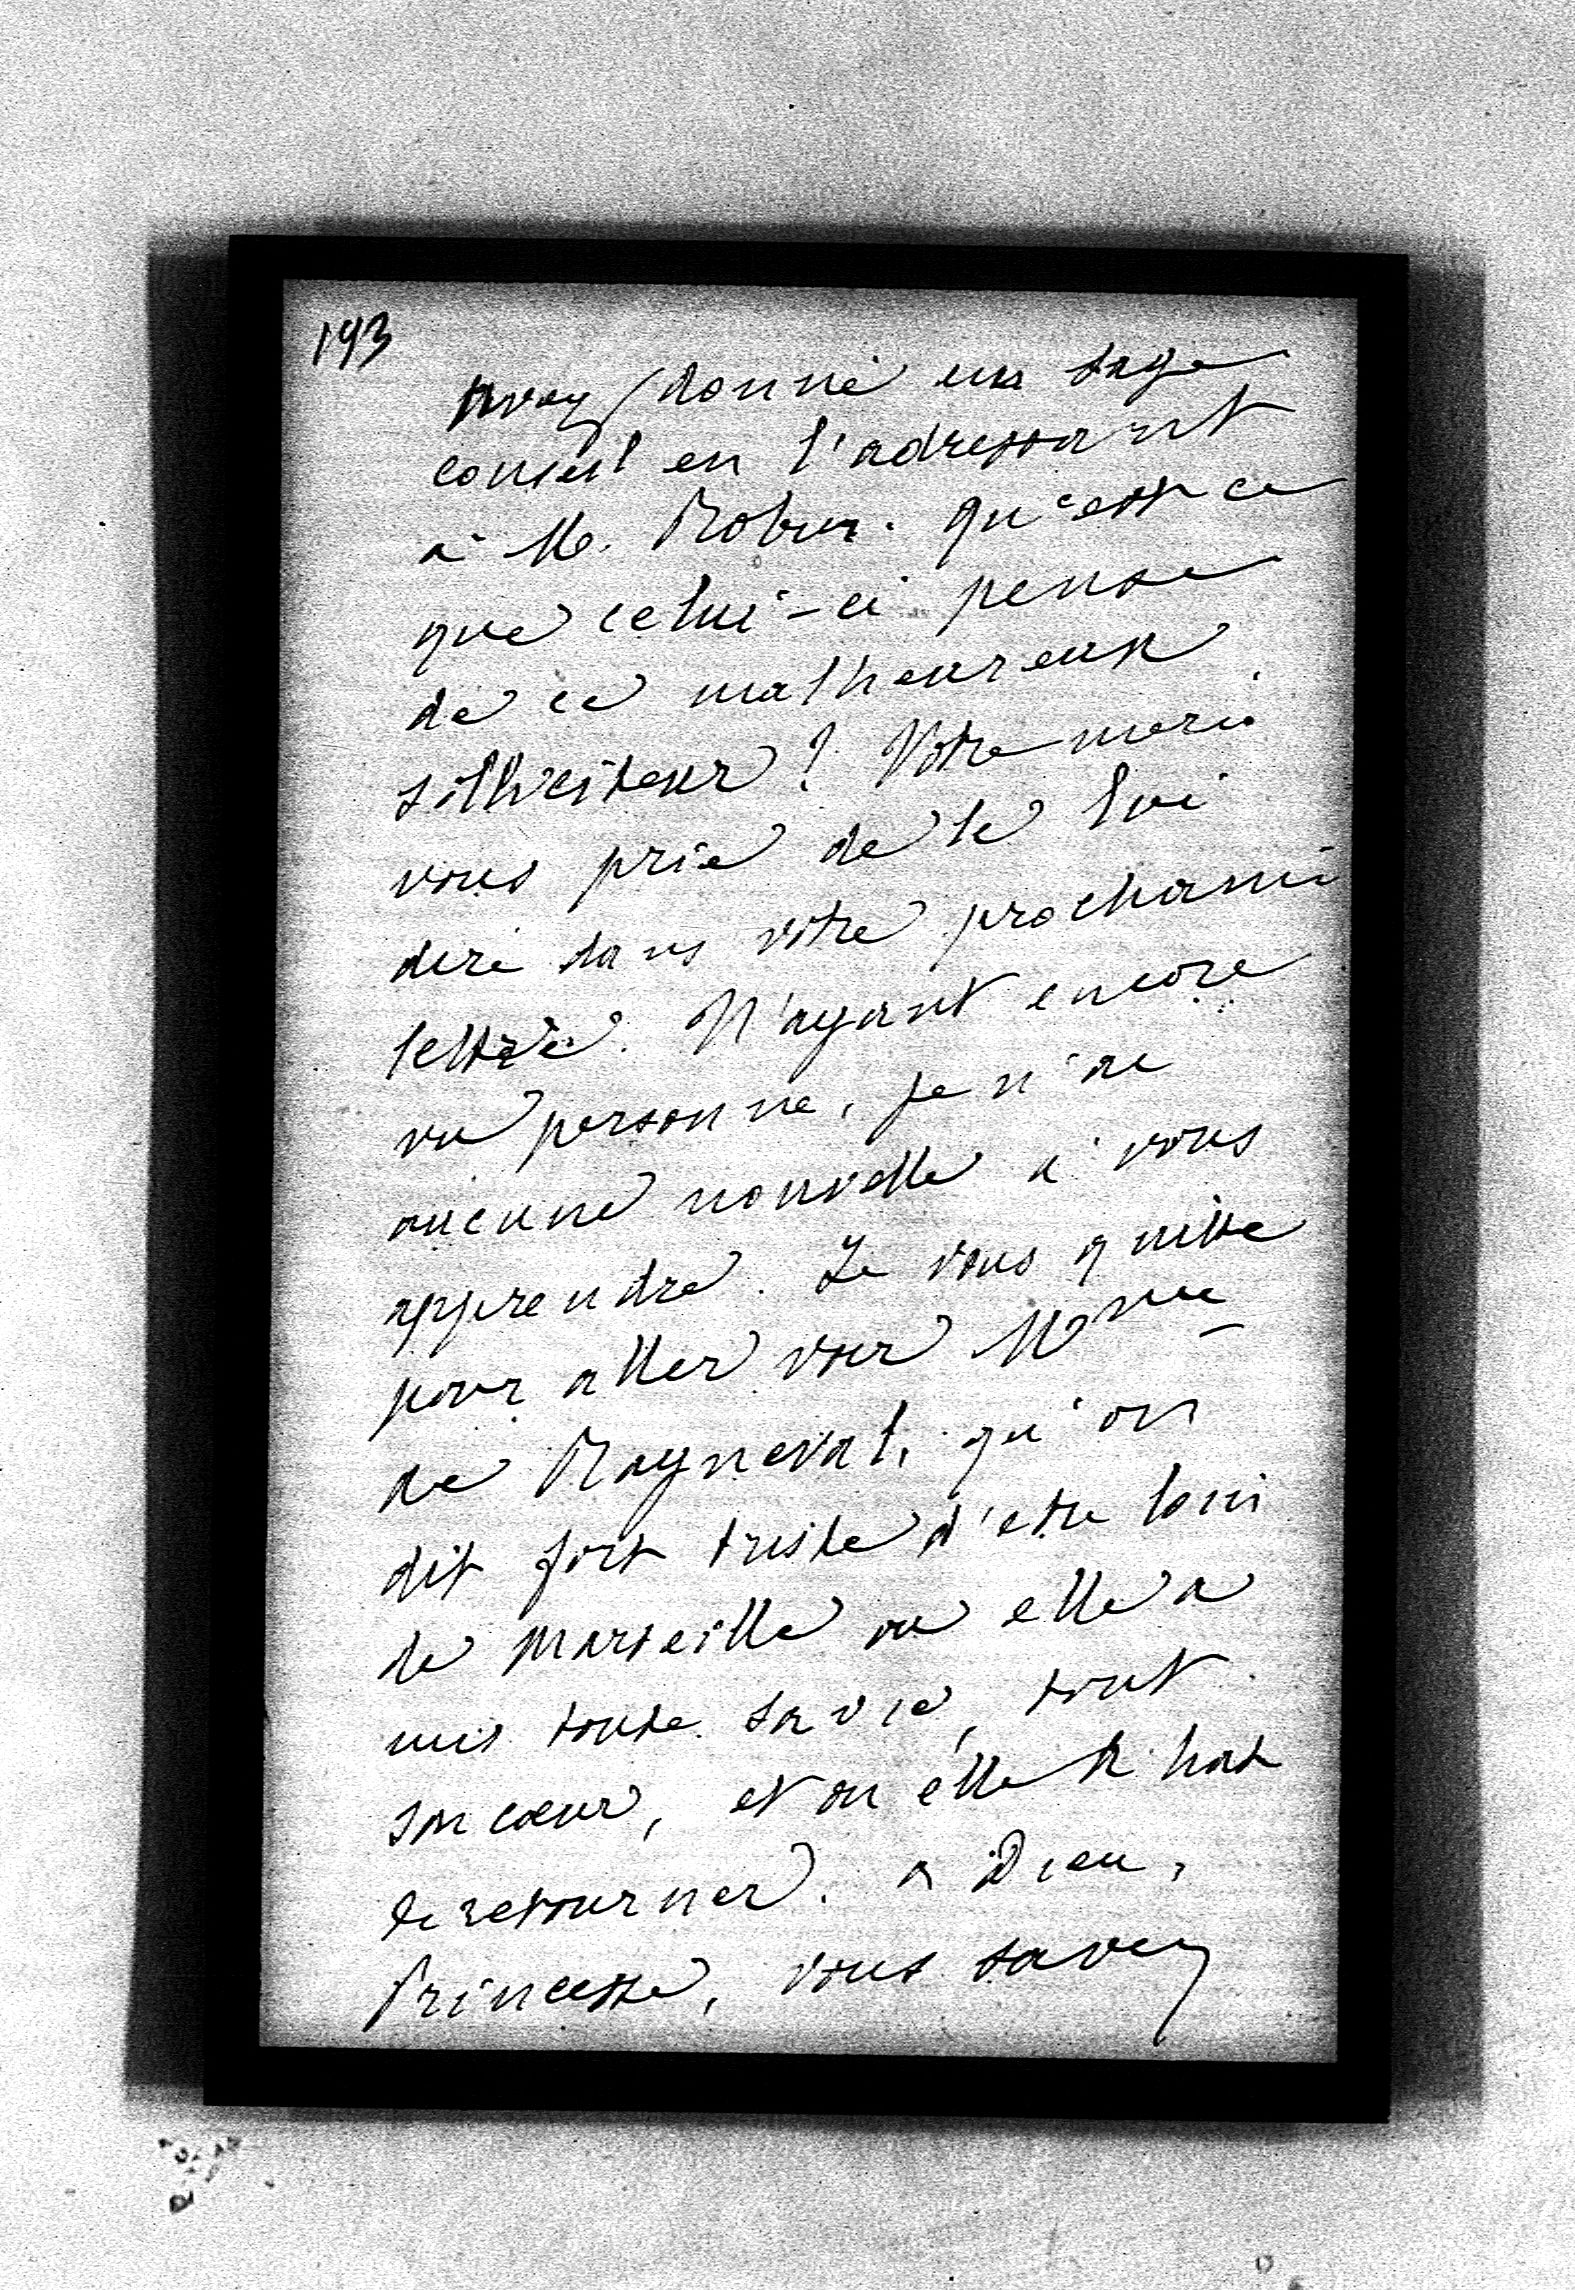 193
avez donné un sage
conseil en l'adressant
à M. Robin. Qu'est ce
que celui-ci pense
de ce malheureux
solliciteur ? Votre mari
vous prie de le lui
dire dans votre prochaine
lettre. N'ayant encore
vu personne, je n'ai
aucune nouvelle à vous
apprendre. Je vous quitte
pour aller voir Mme
de Rayneval, qu'on
dit fort triste d'etre loin
de Marseille ou elle a
mis toute sa vie, tout
son cœur, et ou elle
de retourner. a Dieu,
Princesse, vous savez